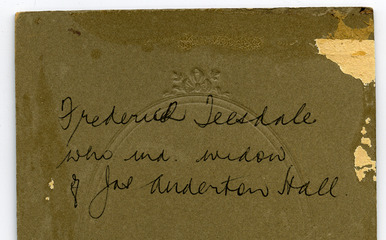 Frederick Teesdale
who md. widow
of Jas Anderton Hall.